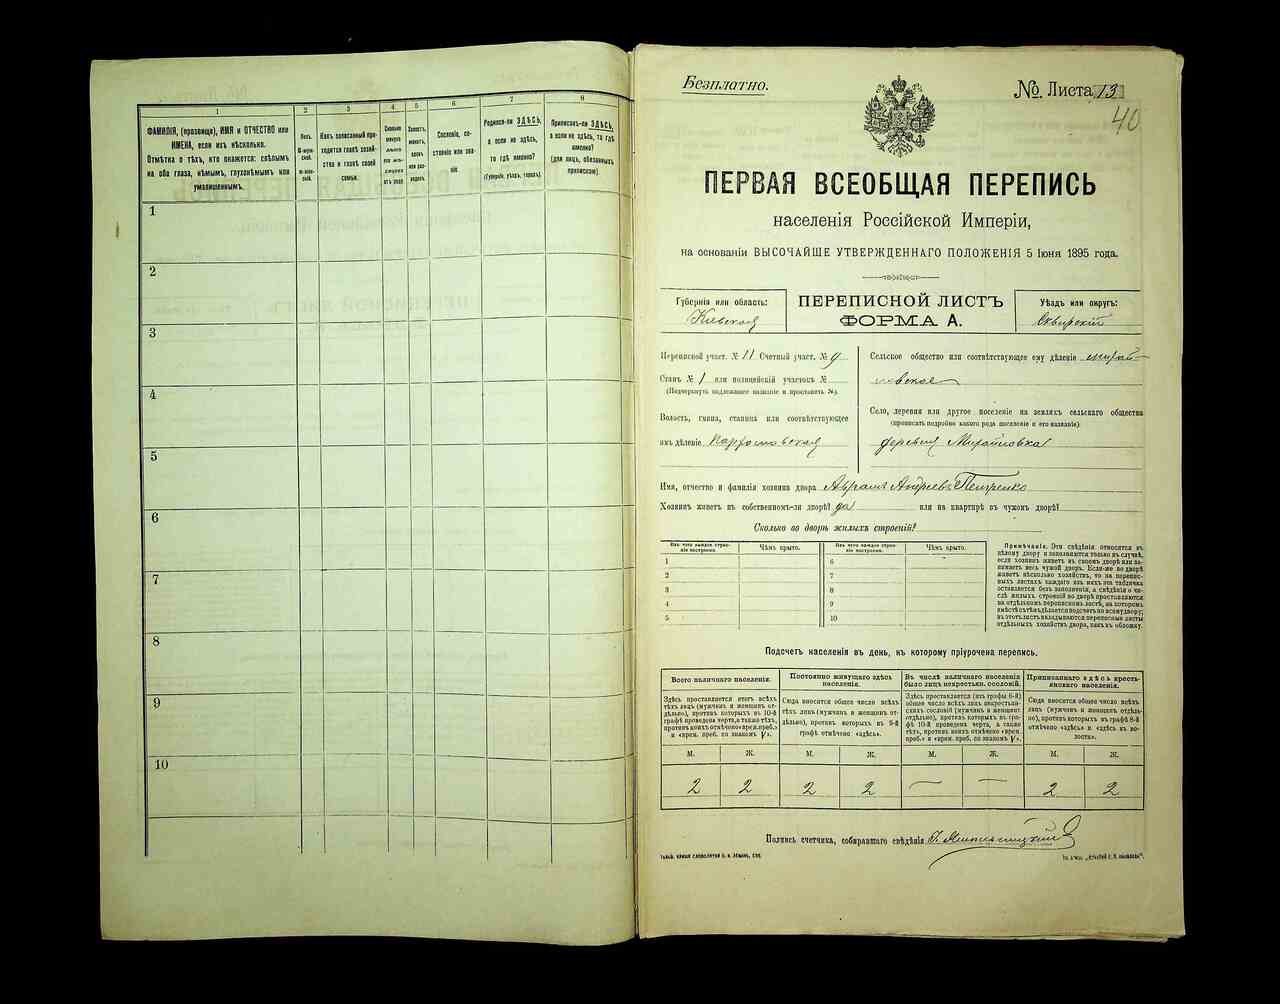 1
2
3
4
5
6
7
8
ФАМИЛІЯ, (прозвище), ИМЯ и ОТЧЕСТВО или
ИМЕНА, если ихъ нѣсколько.
Отмѣтка о тѣхъ, кто окажется: слѣпымъ
на оба глаза, нѣмымъ, глухонѣмымъ или
умалишеннымъ.
Полъ.
М-муж-
ской.
Ж-жен-
скій.
Какъ записанный при-
ходится главѣ хозяй-
ства и главѣ своей
семьи.
Сколько
минуло
лѣтъ
или мѣ-
сяцевъ
отъ роду
Холостъ,
женатъ,
вдовъ
или раз-
веденъ
Сословіе, со-
стояніе или зва-
ніе
Родился-ли ЗДѢСЬ,
а если не здѣсь,
то гдѣ именно?
(Губернія, уѣздъ, городъ).
Приписанъ-ли ЗДѢСЬ,
а если не здѣсь, то гдѣ
именно?
(для лицъ, обязанныхъ
припискою).
1
2
3
4
5
6
7
8
9
10
Безплатно.
№ Листа 13
40
ПЕРВАЯ ВСЕОБЩАЯ ПЕРЕПИСЬ
населенія Россійской Имперіи,
на основаніи ВЫСОЧАЙШЕ УТВЕРЖДЕННАГО ПОЛОЖЕНІЯ 5 Іюня 1895 года.
Губернія или область:
Кіевская
ПЕРЕПИСНОЙ ЛИСТЪ
ФОРМА А.
Уѣздъ или округъ:
Сквирскій
Переписной участ. № 11 Счетный участ. № 9
Станъ № 1 или полицейскій участокъ №
(Подчеркнуть надлежащее названіе и проставить №).
Волость, гмина, станица или соотвѣтствующее
имъ дѣленіе
Сельское общество или соотвѣтствующее ему дѣленіе Михай-
ловское
Село, деревня или другое поселеніе на земляхъ сельскаго общества
(прописать подробно какого рода поселеніе и его названіе)
деревня Михайловка
Имя, отчество и фамилія хозяина двора Аврамъ Андреевъ Петренко
Хозяинъ живетъ въ собственномъ-ли дворѣ? да или на квартирѣ въ чужомъ дворѣ?
Сколько во дворѣ жилыхъ строеній?
Изъ чего каждое строе-
ніе построено.
Чѣмъ крыто.
Изъ чего каждое строе-
ніе построено.
Чѣмъ крыто.
1
2
3
4
5
6
7
8
9
10
Примѣчаніе. Эти свѣдѣнія относятся къ
цѣлому двору и заполняются только въ случаѣ,
если хозяинъ живетъ въ своемъ дворѣ или за-
нимаетъ весь чужой дворъ. Если-же во дворѣ
живетъ нѣсколько хозяйствъ, то на перепис-
ныхъ листахъ каждаго изъ нихъ эта табличка
оставляется безъ заполненія, а свѣдѣнія о чи-
слѣ жилыхъ строеній во дворѣ проставляются
на отдѣльномъ переписномъ листѣ, на которомъ
вмѣстѣ съ тѣмъ дѣлается подсчетъ по всему двору;
въ этотъ листъ вкладываются переписные листы
отдѣльныхъ хозяйствъ двора, какъ въ обложку.
Подсчетъ населенія въ день, къ которому пріурочена перепись.
Всего наличнаго населенія.
Здѣсь проставляется итогъ всѣхъ
тѣхъ лицъ (мужчинъ и женщинъ от-
дѣльно), противъ которыхъ въ 10-й
графѣ проведена черта, а также тѣхъ,
противъ коихъ отмѣчено «врем. преб.»
и «врем. преб. со знакомъ V».
Постоянно живущаго здѣсь
населенія.
Сюда вносится общее число всѣхъ
тѣхъ лицъ (мужчинъ и женщинъ от-
дѣльно), противъ которыхъ въ 9-й
графѣ отмѣчено «здѣсь».
Въ числѣ наличнаго населенія
было лицъ некрестьян. сословій.
Здѣсь проставляется (изъ графы 6-й)
общее число всѣхъ лицъ некрестьян-
скихъ сословій (мужчинъ и женщинъ
отдѣльно), противъ которыхъ въ гра-
фѣ 10-й проведена черта, а также
тѣхъ, противъ коихъ отмѣчено «врем.
преб.» и «врем. преб. со знакомъ V».
Приписаннаго здѣсь кресть-
янскаго населенія.
Сюда вносится общее число всѣхъ
лицъ (мужчинъ и женщинъ отдѣль-
но), противъ которыхъ въ графѣ 8-й
отмѣчено «здѣсь» и «здѣсь въ во-
лости».
М.
Ж.
М.
Ж.
М.
Ж.
М.
Ж.
2
2
2
2
—
—
2
2
Подпись счетчика, собиравшаго свѣдѣнія